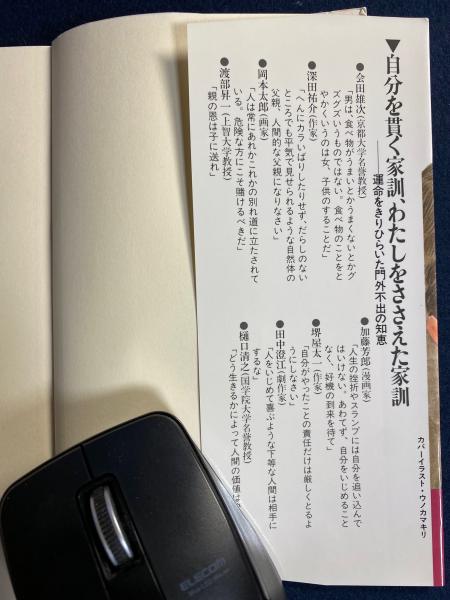 ▼自分を貫く家訓、わたしをささえた家訓
――運命をきりひらいた門外不出の知恵
●会田雄次(京都大学名誉教授)
「男は、食べ物がうまいとかうまくないとかグ
ズグズいうものではない。食べ物のことをと
やかくいうのは女、子供のすることだ」
●深田祐介(作家)
「へんにカラいばりしたりせず、だらしのない
ところでも平気で見せられるような自然体の
父親、人間的な父親になりなさい」
●岡本太郎(画家)
「人は常にあれかこれかの別れ道に立たされて
いる。危険な方にこそ賭けるべきだ」
●渡部昇一(上智大学教授)
「親の恩は子に送れ」
●加藤芳郎(漫画家)
「人生の挫折やスランプには自分を追い込んで
はいけない。あわてず、自分をいじめること
なく、好機の到来を待て」
●堺屋太一(作家)
「自分がやったことの責任だけは厳しくとるよ
うにしなさい」
●田中澄江(劇作家)
「人をいじめて喜ぶような下等な人間は相手に
するな」
●樋口清之(国学院大学名誉教授)
「どう生きるかによって人間の価値は
カバーイラスト・ウノカマキリ
ELECOM